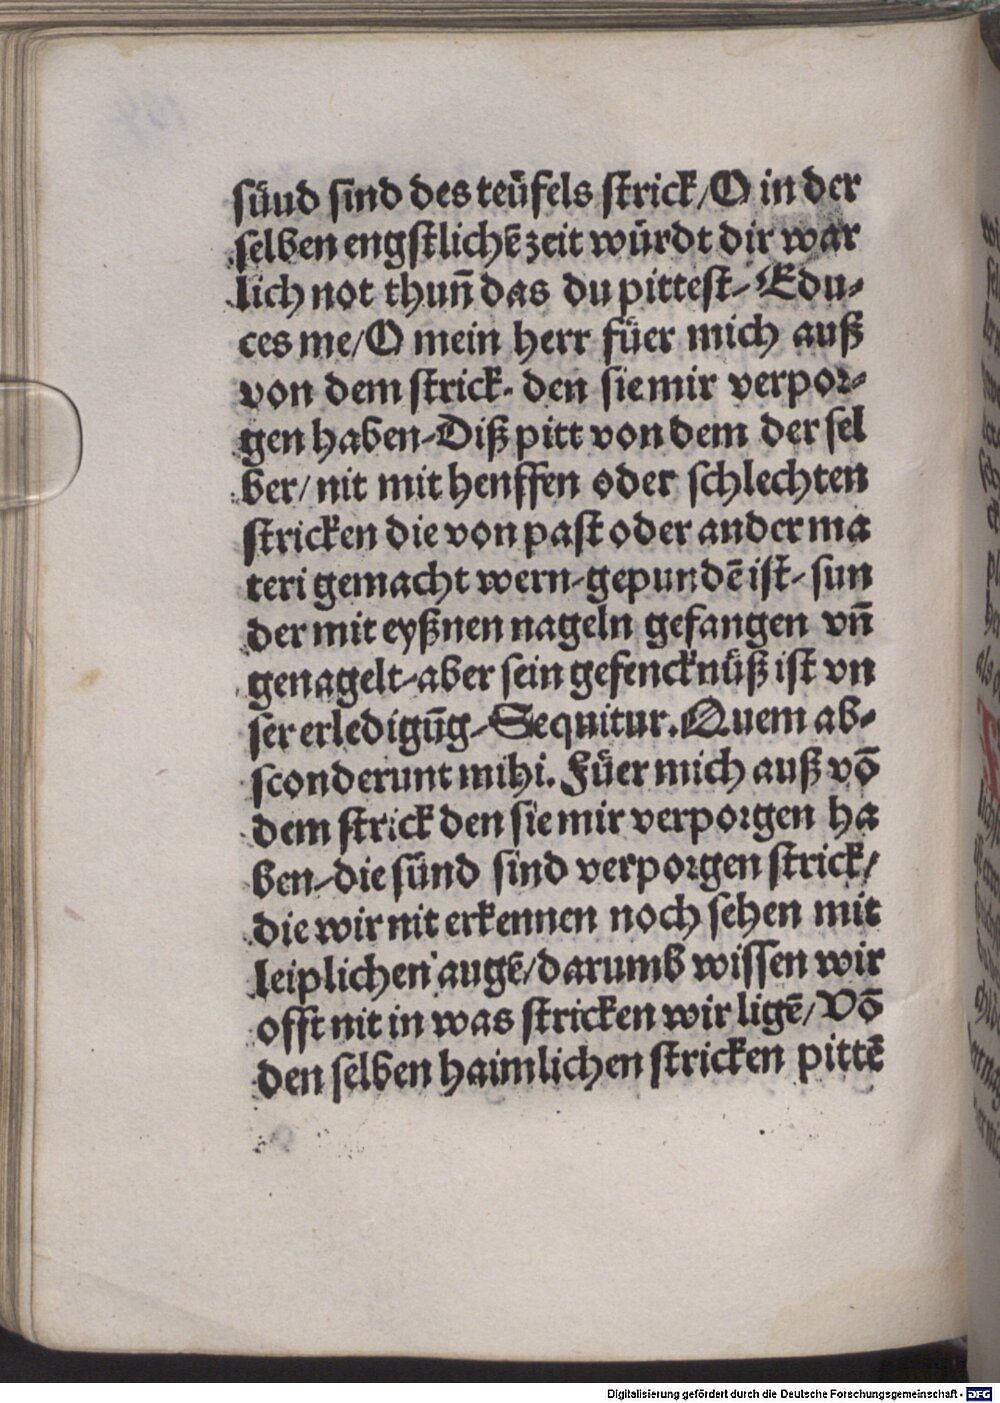 süud sind des teüfels strick/O in der
selben engstlichē zeit würdt dir war
lich not thun̄ das du pittest-Edu-
ces me/O mein herr füer mich auß
von dem strick. den sie mir verpor-
gen haben-Diß pitt von dem der sel
ber/nit mit henffen oder schlechten
stricken die von past oder ander ma
teri gemacht wern-gepundē ist-sun
der mit eyßnen nageln gefangen vn̄
genagelt-aber sein gefencknüß ist vn
ser erledigūg-Sequitur.Quem ab-
sconderunt mihi. Füer mich auß vō
dem strick den sie mir verporgen ha
ben-die sünd sind verporgen strick/
die wir nit erkennen noch sehen mit
leiplichen augē/darumb wissen wir
offt nit in was stricken wir ligē/Vō
den selben haimlichen stricken pittē
Digitalisierung gefördert durch die Deutsche Forschungsgemeinschaft - DFG